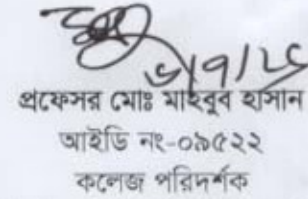 ৬/৭/২৬
প্রফেসর মোঃ মাহবুব হাসান
আইডি নং-০৯৫২২
কলেজ পরিদর্শক